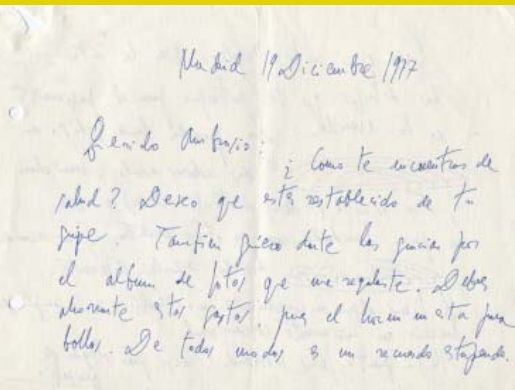 Madrid 19 Diciembre 1977
Querido Ambrosio:
¿ Como te encuentras de
salud? Deseo que estés restablecido de tu
gripe. Tambien quiero darte las gracias por
el album de fotos que me regalaste. Debes
ahorrarte estos gastos, pues el horno no está para
bollos. De todos modos es un recuerdo estupendo.